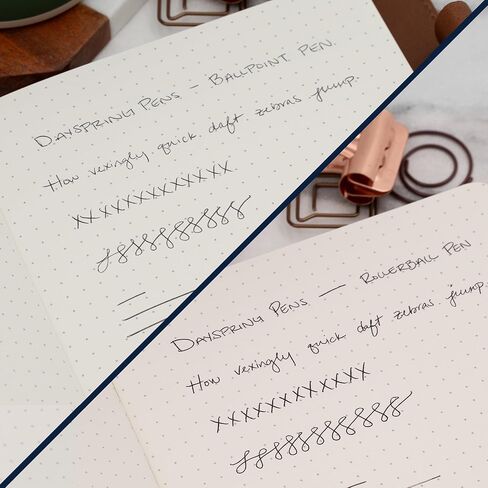 DAYSPRING PENS — BALLPOINT PEN.
How vexingly quick daft zebras jump.
XXXXXXXXXXXX
DAYSPRING PENS — ROLLERBALL PEN
How vexingly quick daft zebras jump.
XXXXXXXXXXXX